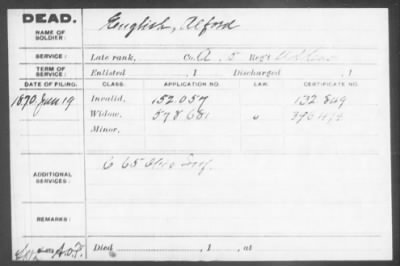 DEAD.
NAME OF SOLDIER: English, Alford
SERVICE: Late rank, Co. A. 5 Reg't
TERM OF SERVICE: Enlisted , 1 Discharged , 1
DATE OF FILING. CLASS. APPLICATION NO. LAW. CERTIFICATE NO.
1870 Jun 19 Invalid, 152.057 132
Widow, 578.681
Minor,
ADDITIONAL SERVICES: 65 Inf.
REMARKS:
Died , 1 , at